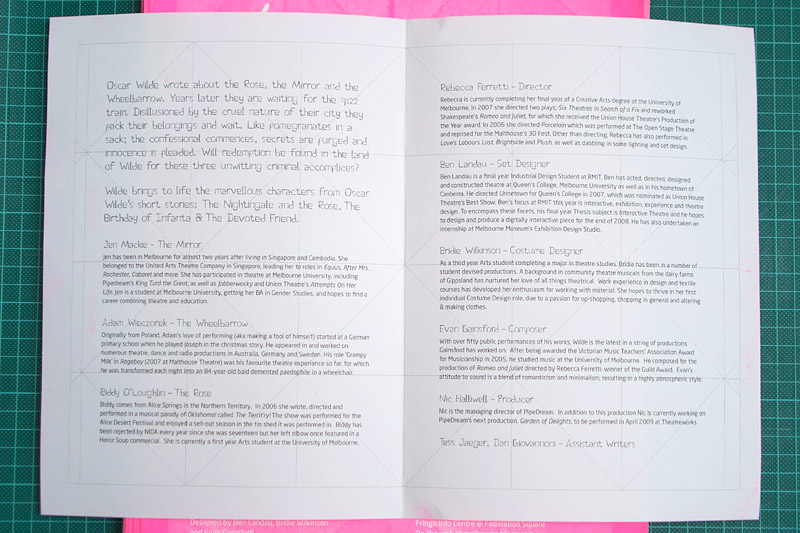 Oscar Wilde wrote about the Rose, the Mirror and the
Wheelbarrow. Years later they are waiting for the 9:22
train. Disillusioned by the cruel nature of their city they
pack their belongings and wait. Like pomegranates in a
sack; the confessional commences, secrets are purged and
innocence is pleaded. Will redemption be found in the land
of Wilde for these three unwitting criminal accomplices?
Wilde brings to life the marvellous characters from Oscar
Wilde's short stories; The Nightingale and the Rose, The
Birthday of Infanta & The Devoted Friend.
Jen Mackie - The Mirror
Jen has been in Melbourne for almost two years after living in Singapore and Cambodia. She
belonged to the United Arts Theatre Company in Singapore, leading her to roles in Equus, After Mrs.
Rochester, Cabaret and more. She has participated in theatre at Melbourne University, including
Pipedream's King Turd the Great, as well as Jabberwocky and Union Theatre's Attempts On Her
Life. Jen is a student at Melbourne University, getting her BA in Gender Studies, and hopes to find a
career combining theatre and education.
Adam Wieczorek - The Wheelbarrow
Originally from Poland, Adam's love of performing (aka making a fool of himself) started at a German
primary school when he played Joseph in the christmas story. He appeared in and worked on
numerous theatre, dance and radio productions in Australia, Germany and Sweden. His role 'Grampy
Milk' in Ragaboy (2007 at Malthouse Theatre) was his favourite theatre experience so far, for which
he was transformed each night into an 84-year-old bald demented paedophile in a wheelchair.
Biddy O'Loughlin - The Rose
Biddy comes from Alice Springs in the Northern Territory. In 2006 she wrote, directed and
performed in a musical parody of Oklahoma! called The Territory! The show was performed for the
Alice Desert Festival and enjoyed a sell-out season in the tin shed it was performed in. Biddy has
been rejected by NIDA every year since she was seventeen but her left elbow once featured in a
Heinz Soup commercial. She is currently a first year Arts student at the University of Melbourne.
Rebecca Ferretti - Director
Rebecca is currently completing her final year of a Creative Arts degree at the University of
Melbourne. In 2007 she directed two plays, Six Theatres in Search of a Fix and reworked
Shakespeare's Romeo and Juliet, for which she received the Union House Theatre's Production of
the Year award. In 2006 she directed Porcelain which was performed at The Open Stage Theatre
and reprised for the Malthouse's 3D Fest. Other than directing, Rebecca has also performed in
Love's Labours Lost, Brightside and Plush, as well as dabbling in some lighting and set design.
Ben Landau - Set Designer
Ben Landau is a final year Industrial Design Student at RMIT. Ben has acted, directed, designed
and constructed theatre at Queen's College, Melbourne University as well as in his hometown of
Canberra. He directed Urinetown for Queen's College in 2007, which was nominated as Union House
Theatre's Best Show. Ben's focus at RMIT this year is interactive, exhibition, experience and theatre
design. To encompass these facets, his final year Thesis subject is Interactive Theatre and he hopes
to design and produce a digitally interactive piece for the end of 2008. He has also undertaken an
internship at Melbourne Meseum's Exhibition Design Studio.
Bridie Wilkinson - Costume Designer
As a third year Arts student completing a major in theatre studies, Bridie has been in a number of
student devised productions. A background in community theatre musicals from the dairy farms
of Gippsland has nurtured her love of all things theatrical. Work experience in design and textile
courses has developed her enthusiasm for working with material. She hopes to thrive in her first
individual Costume Design role, due to a passion for op-shopping, shopping in general and altering
& making clothes.
Evan Gainsford - Composer
With over fifty public performances of his works, Wilde is the latest in a string of productions
Gainsford has worked on. After being awarded the Victorian Music Teachers' Association Award
for Musicianship in 2005, he studied music at the University of Melbourne. He composed for the
production of Romeo and Juliet directed by Rebecca Ferretti, winner of the Guild Award. Evan's
attitude to sound is a blend of romanticism and minimalism, resulting in a highly atmospheric style.
Nic Halliwell - Producer
Nic is the managing director of PipeDream. In addition to this production Nic is currently working on
PipeDream's next production, Garden of Delights, to be performed in April 2009 at Theatreworks.
Tess Jaeger, Dan Giovannoni - Assistant Writers
Designed by Ben Landau, Bridie Wilkinson
and Evan Gainsford
Fringe Info Centre @ Federation Square